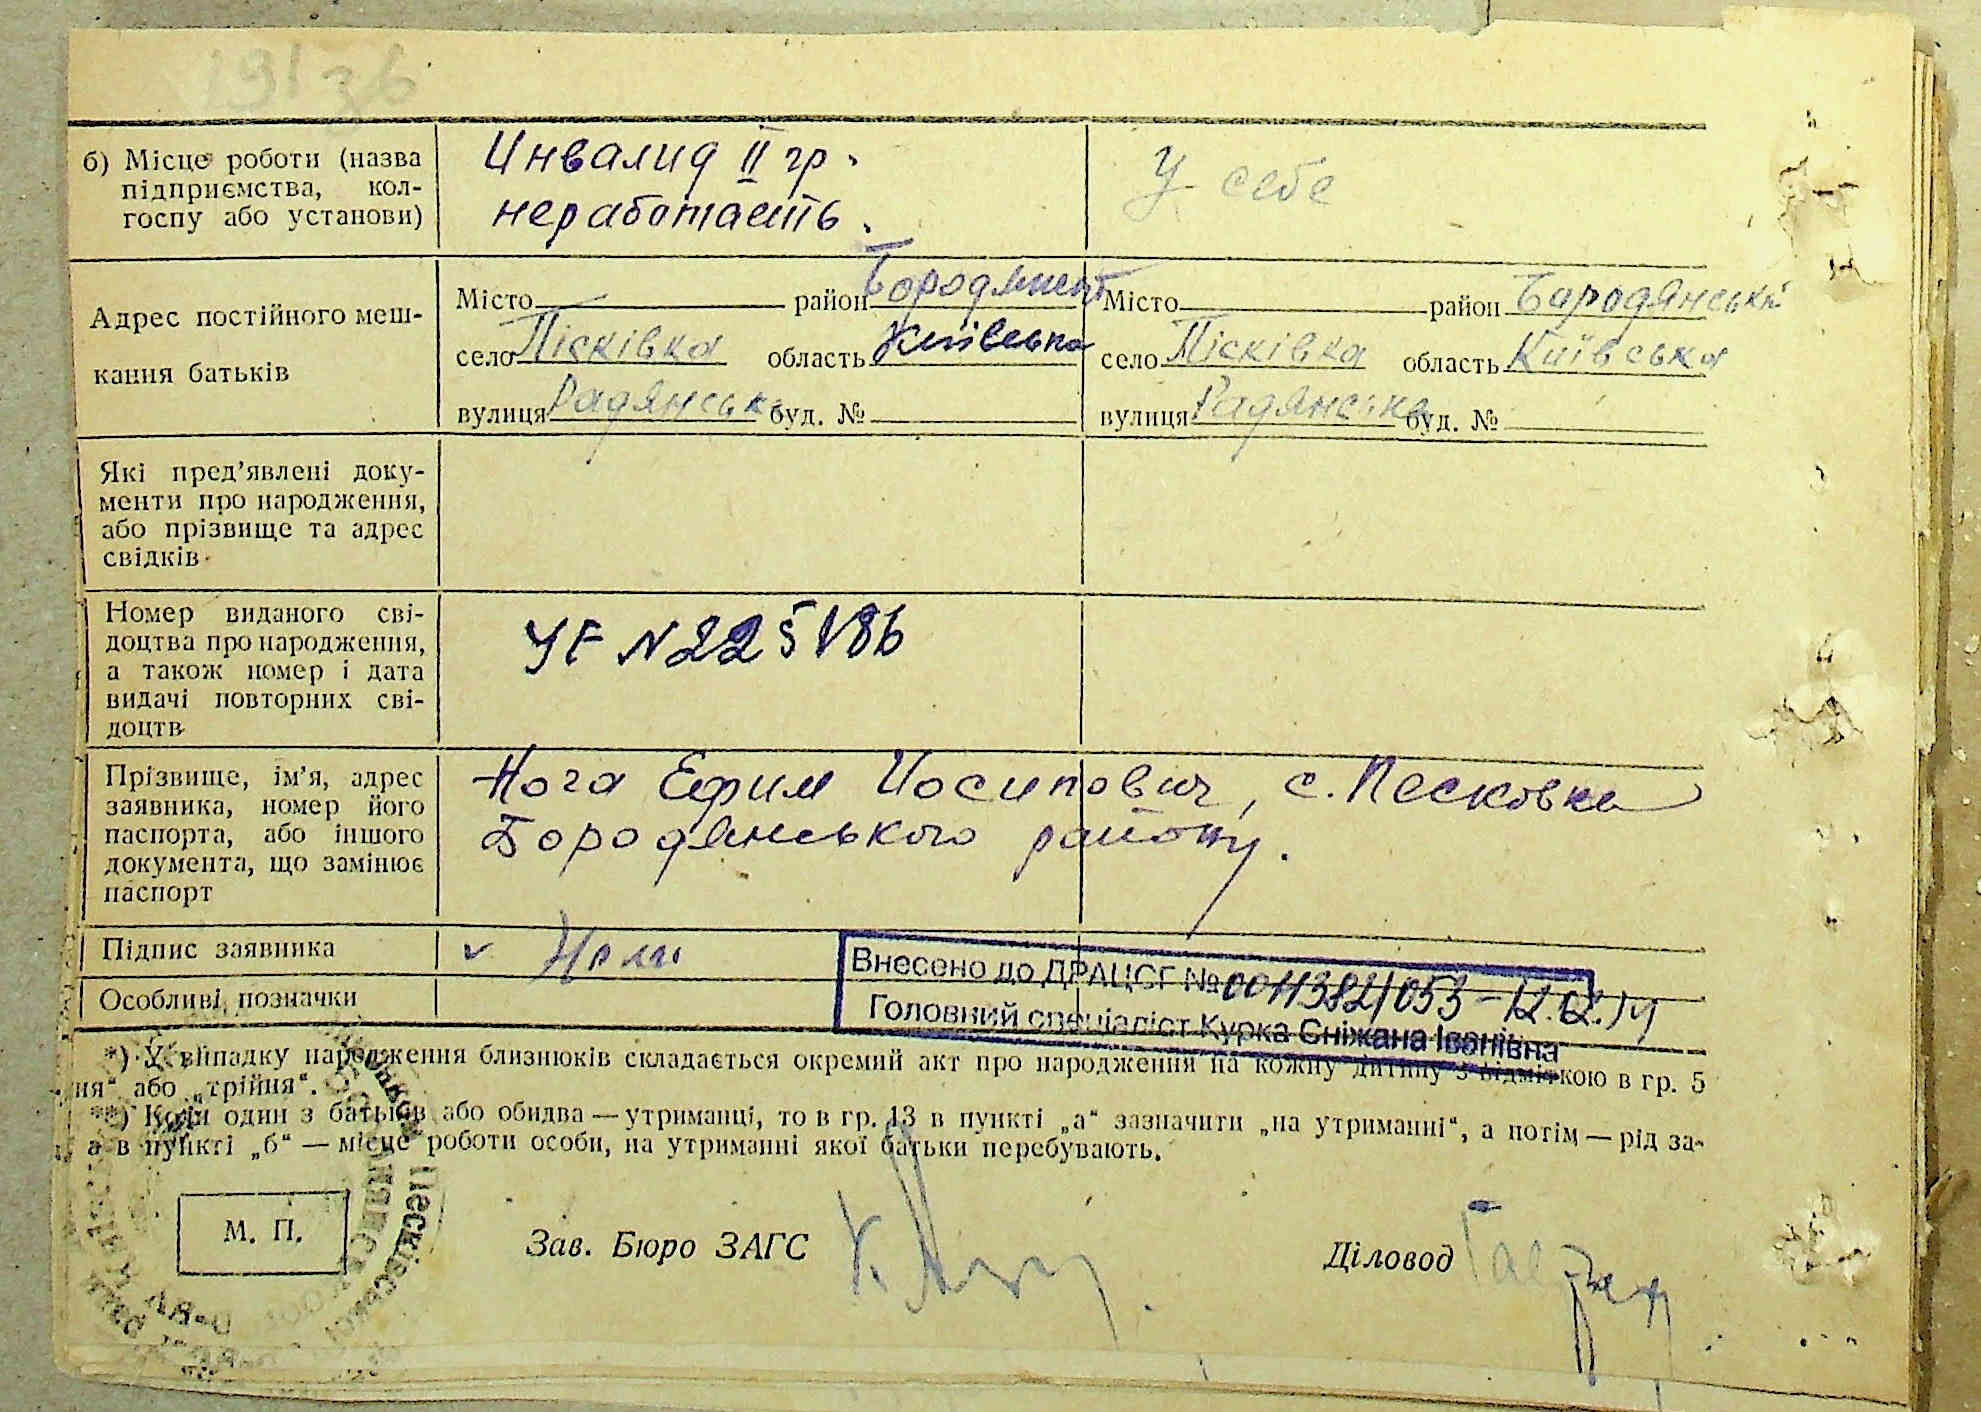 б) Місце роботи (назва
підприємства, кол-
госпу або установи)
Инвалид II гр.
неработаеть.
У себе
Адрес постійного меш-
кання батьків
Місто район Бородянськ
село Пісківка область Київська
вулиця Радянськ буд. №
Місто район Бородянський
село Пісківка область Київська
вулиця Радянська буд. №
Які пред’явлені доку-
менти про народження,
або прізвище та адрес
свідків
Номер виданого сві-
доцтва про народження,
а також номер і дата
видачі повторних сві-
доцтв
УГ N 225186
Прізвище, ім’я, адрес
заявника, номер його
паспорта, або іншого
документа, що замінює
паспорт
Нога Ефим Иосипович, с. Песковка
Бородянського району.
Підпис заявника
Особливі позначки
Внесено до ДРАЦСГ № 0011382/053 – 12.02.14
Головний спеціаліст Курка Сніжана Іванівна
*) У випадку народження близнюків складається окремий акт про народження на кожну дитину з відміткою в гр. 5
ня“ або „трійня“.
**) Коли один з батьків або обидва — утриманці, то в гр. 13 в пункті „а“ зазначити „на утриманні“, а потім — рід за-
а в пункті „б“ — місце роботи особи, на утриманні якої батьки перебувають.
М. П.
Зав. Бюро ЗАГС
Діловод